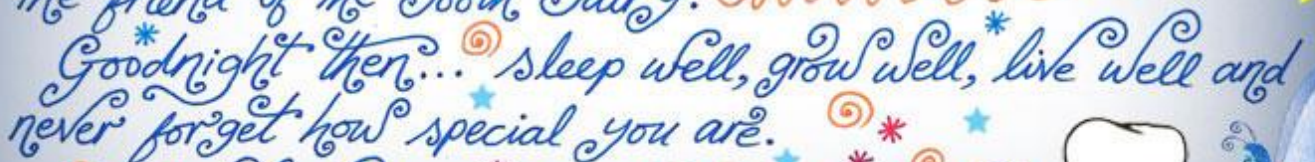 the friend of the Tooth Fairy.
Goodnight then... sleep well, grow well, live well and
never forget how special you are.